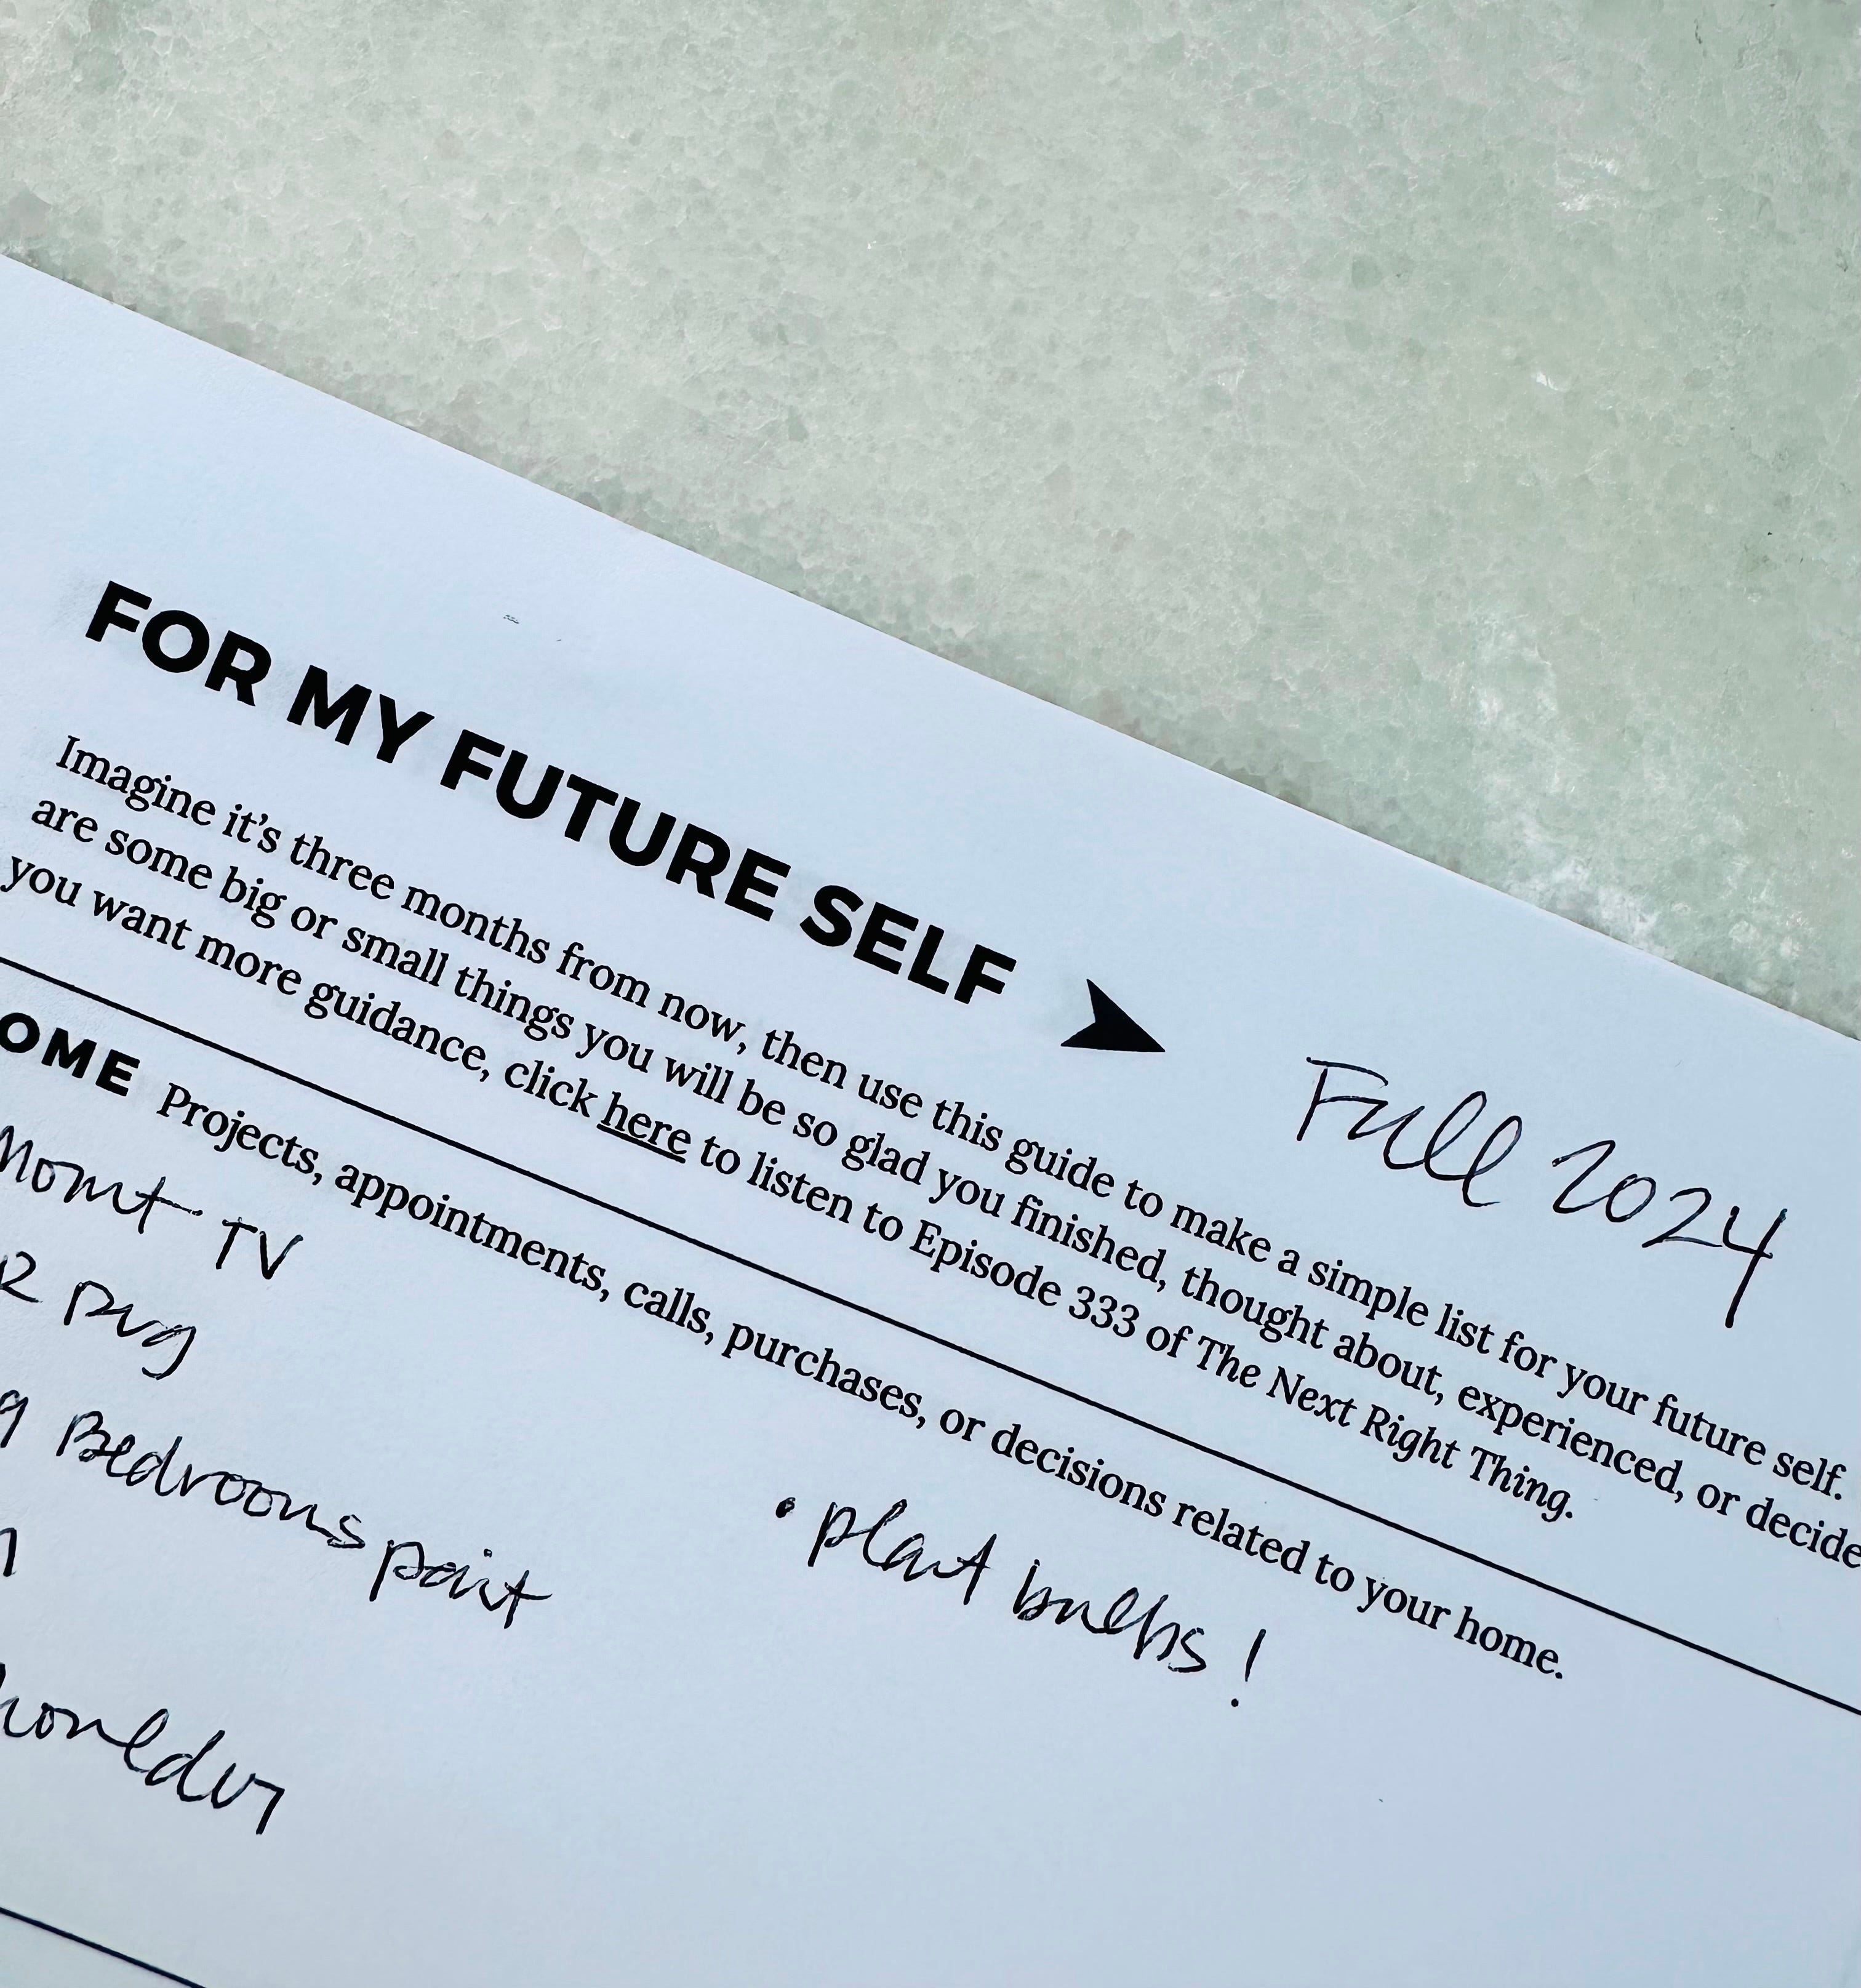 FOR MY FUTURE SELF
Fall 2024
Imagine it's three months from now, then use this guide to make a simple list for your future self.
are some big or small things you will be so glad you finished, thought about, experienced, or decide
you want more guidance, click here to listen to Episode 333 of The Next Right Thing.
OME Projects, appointments, calls, purchases, or decisions related to your home.
TV
rug
Bedrooms paint
• plant bulbs!